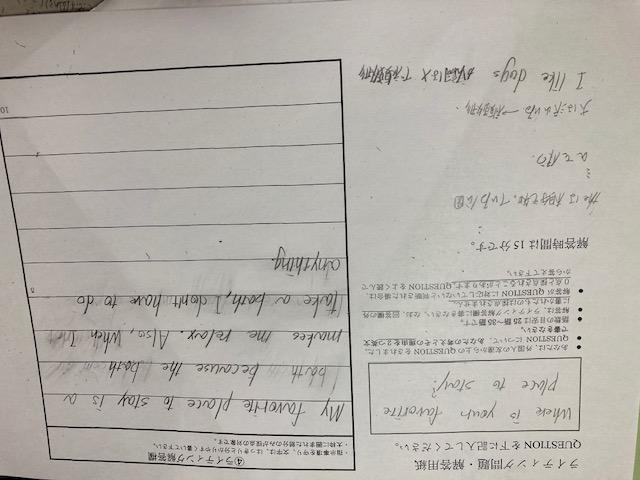 ライティング問題・解答用紙
QUESTIONを下に記入してください。
Where is your favorite
place to stay?
● あなたは、外国人の友達から上のQUESTIONをされました。
● QUESTIONについて、あなたの考えとその理由を2つ英文で書きなさい。
● 語数の目安は25語〜35語です。
● 解答は、ライティング解答欄に書きなさい。なお、回答欄の外に書かれたものは採点されません。
● 解答がQUESTIONに対応していないと判断された場合は、0点と採点されることがあります。QUESTIONをよく読んでから答えて下さい。
解答時間は15分です。
a で1つの
I like dogs
④ライティング解答欄
・指示事項を守り、文字は、はっきりと分かりやすく書いて下さい。
・太枠に囲まれた部分のみが採点の対象です。
My favorite place to stay is a
bath because the bath
makes me relax. Also, when I
take a bath, I don't have to do
anything.
5
10